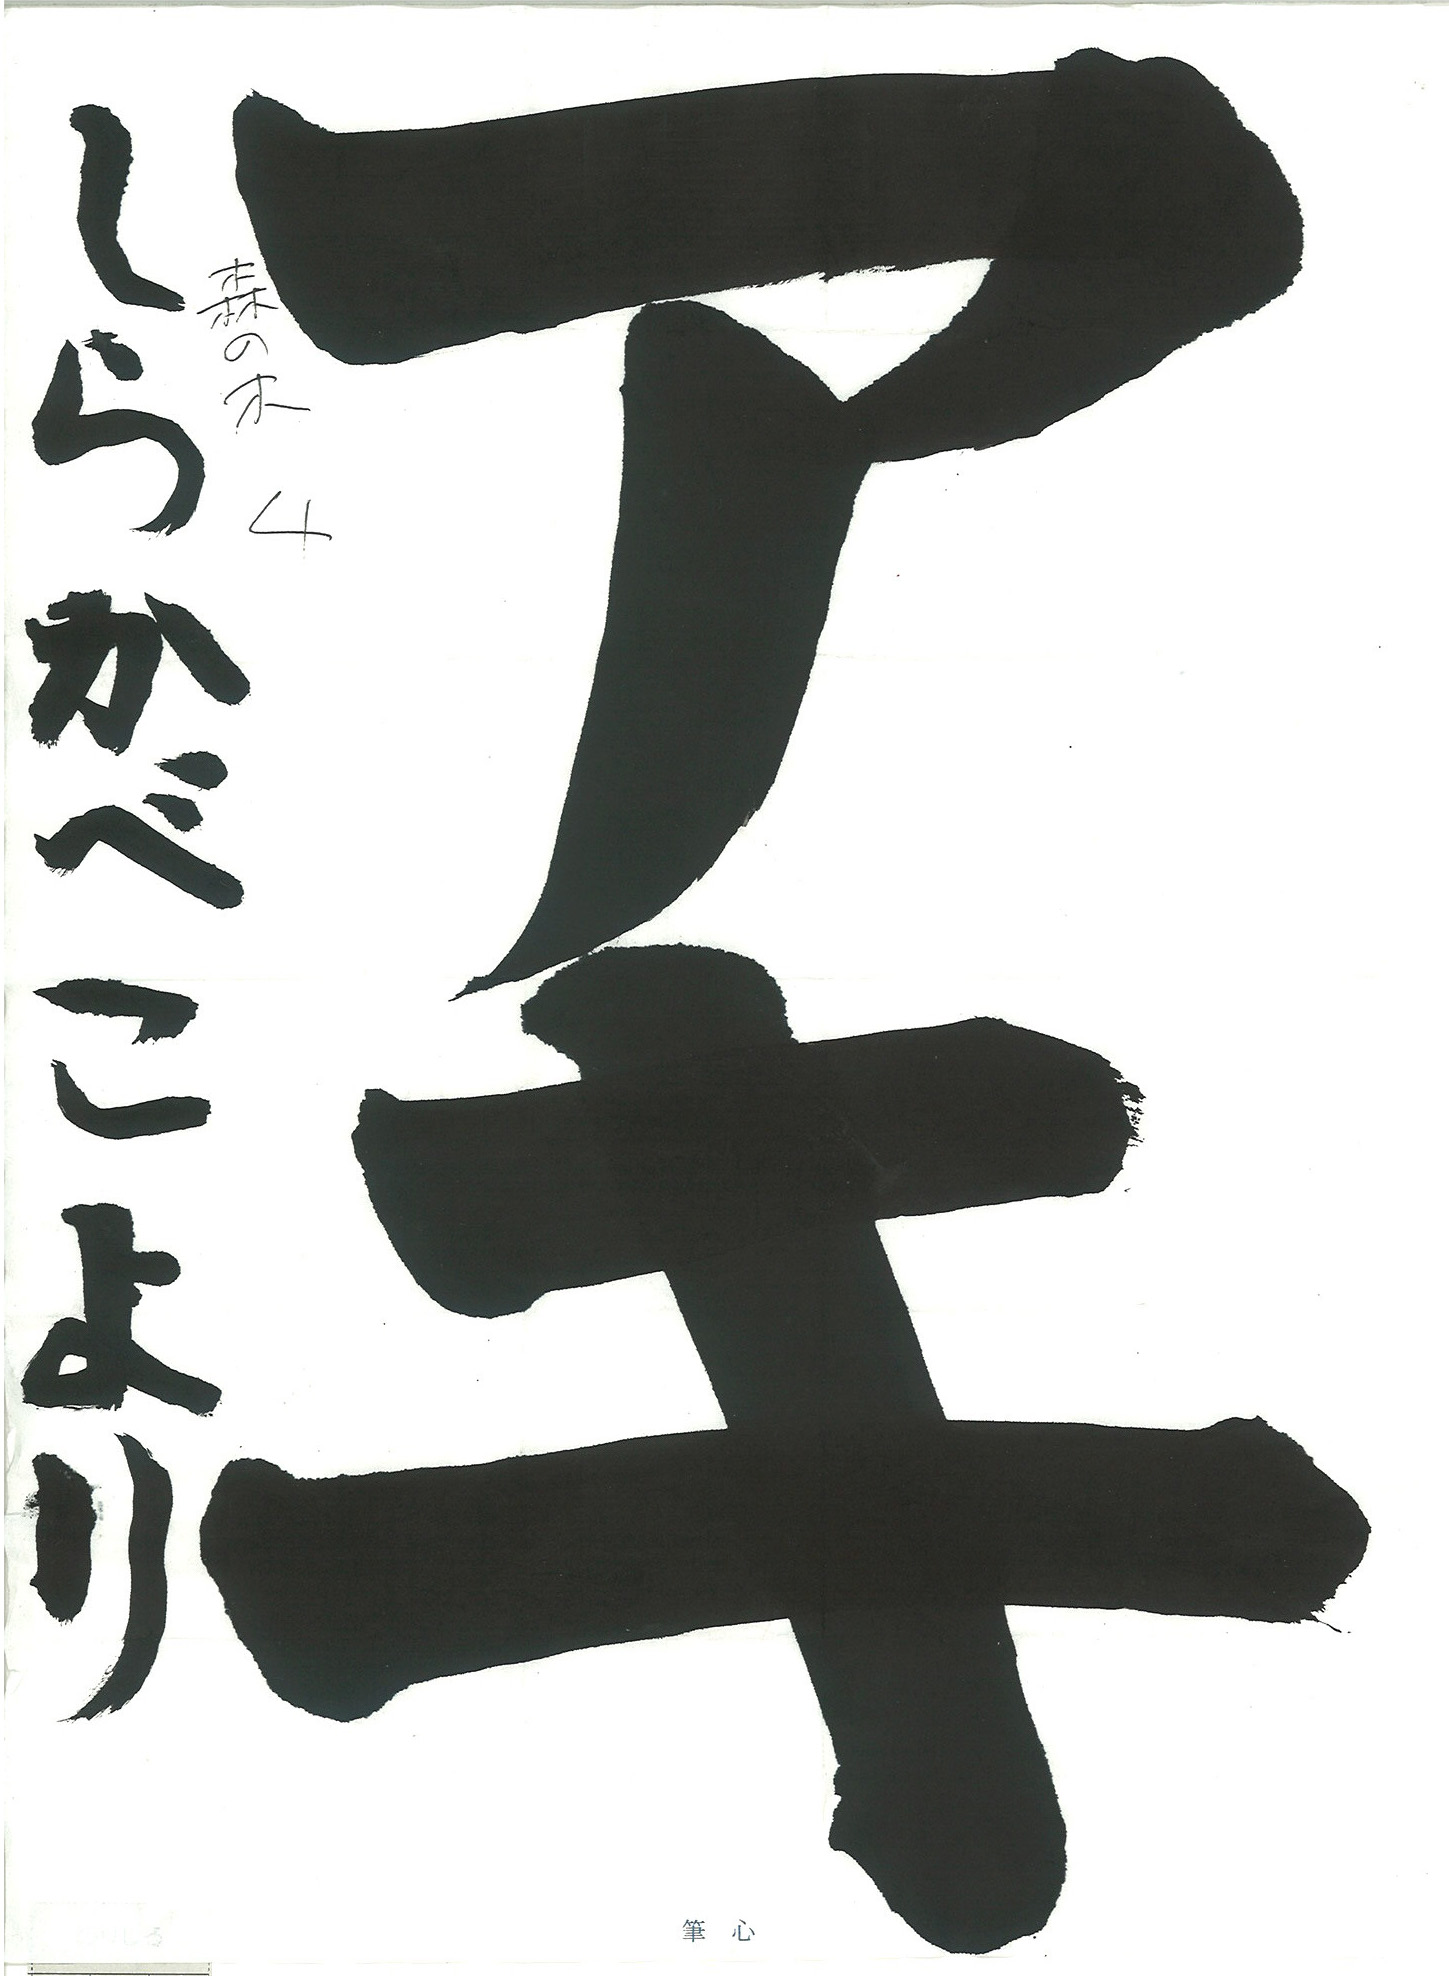 アキ
森の木 4
しらかべこより
筆心